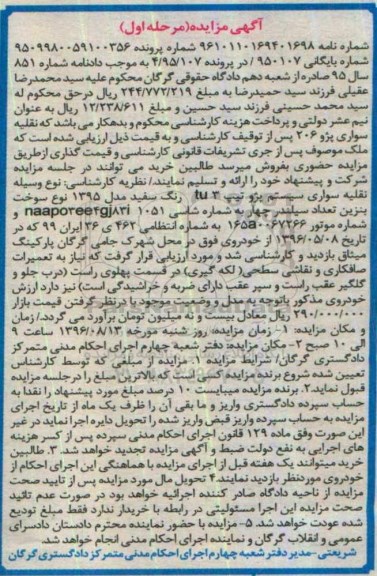 آگهی مزایده(مرحله اول)
شماره نامه ۹۶۱۰۱۱۰۱۶۹۴۰۱۶۹۸ شماره پرونده ۹۵۰۹۹۸۰۰۵۹۱۰۰۳۵۶
شماره بایگانی ۹۵۰۱۰۷ / در پرونده ۴/۹۵/۱۰۷ به موجب دادنامه شماره ۸۵۱
سال ۹۵ صادره از شعبه دهم دادگاه حقوقی گرگان محکوم علیه سید محمدرضا
عقیلی فرزند سید حمیدرضا به مبلغ ۲۴۴/۷۷۲/۲۱۹ ریال درحق محکوم له
سید محمد حسینی فرزند سید حسین و مبلغ ۱۲/۲۳۸/۶۱۱ ریال به عنوان
نیم عشر دولتی و پرداخت هزینه کارشناسی محکوم و بدهکار می باشد که نقلیه
سواری پژو ۲۰۶ پس از توقیف کارشناسی و به قیمت ذیل ارزیابی شده است که
ملک موصوف پس از جری تشریفات قانونی کارشناسی و قیمت گذاری ازطریق
مزایده حضوری بفروش میرسد طالبین خرید می توانند در جلسه مزایده
شرکت و پیشنهاد خود را ارائه و تسلیم نمایند/ نظریه کارشناسی: نوع وسیله
نقلیه سواری سیستم پژو تیپ tu ۳ رنگ سفید مدل ۱۳۹۵ نوع سوخت
بنزین تعداد سیلندر چهار به شماره شاسی naap۰۳ee۲gj۸۳۱۰۵۱ و
شماره موتور ۱۶۵a۰۰۶۷۲۶۶ به شماره انتظامی ۴۶۲ ی ۳۶ ایران ۹۹ که در
تاریخ ۱۳۹۶/۰۵/۰۸ از خودروی فوق در محل شهرک جامی گرگان پارکینگ
میثاق بازدید و کارشناسی شد و مورد ارزیابی قرار گرفت که نیاز به تعمیرات
صافکاری و نقاشی سطحی( لکه گیری) در قسمت پهلوی راست (درب جلو و
گلگیر عقب راست و سپر عقب دارای ضربه و خراشیدگی است) نیز دارد ارزش
خودروی مذکور باتوجه به مدل و وضعیت موجود با درنظر گرفتن قیمت بازار
۲۹۰/۰۰۰/۰۰۰ ریال معادل بیست و نه میلیون تومان برآورد می گردد./ زمان
و مکان مزایده: ۱- زمان مزایده: روز شنبه مورخه ۱۳۹۶/۰۸/۱۳ ساعت ۹
الی ۱۰ صبح ۲- مکان مزایده: دفتر شعبه چهارم اجرای احکام مدنی متمرکز
دادگستری گرگان/ شرایط مزایده ۱. مزایده از مبلغی که توسط کارشناس
تعیین شده شروع برنده مزایده کسی است که بالاترین مبلغ را درجلسه مزایده
قبول نماید.۲. برنده مزایده میبایست ۱۰ درصد مبلغ مورد پیشنهاد را نقدا به
حساب سپرده دادگستری واریز و ما بقی آن را ظرف یک ماه از تاریخ اجرای
مزایده به حساب سپرده واریز قبض واریز شده را تحویل دایره اجرا نماید در غیر
این صورت وفق ماده ۱۲۹ قانون اجرای احکام مدنی سپرده پس از کسر هزینه
های اجرایی به نفع دولت ضبط و آگهی مزایده تجدید خواهد شد. ۳. طالبین
خرید میتوانند یک هفته قبل از اجرای مزایده با هماهنگی این اجرای احکام از
خودروی موردنظر بازدید نمایند.۴ تحویل مال مورد مزایده پس از تایید صحت
مزایده از ناحیه دادگاه صادر کننده اجرائیه خواهد بود در صورت عدم تائید
صحت مزایده این اجرا مسئولیتی در رابطه با خریدار ندارد فقط مبلغ تودیع
شده عودت خواهد شد. ۵- مزایده با حضور نماینده محترم دادستان دادسرای
عمومی و انقلاب گرگان و نماینده اجرای احکام مدنی انجام خواهد شد.
شریعتی-مدیر دفتر شعبه چهارم اجرای احکام مدنی متمرکز دادگستری گرگان